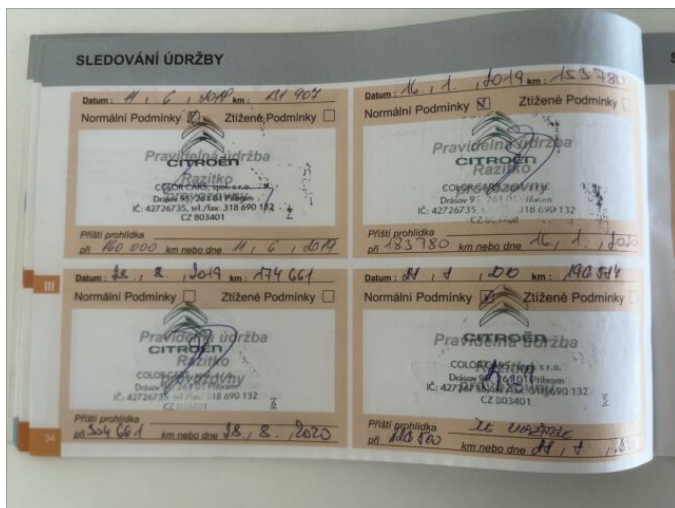 SLEDOVÁNÍ ÚDRŽBY
Datum: 11, 6, 2018 km: 151 907
Normální Podmínky Ztížené Podmínky
Pravidelná údržba
CITROËN
Razítko
COLOR CARS, spol. s r.o.
Drásov 95, 261 01 Příbram
IČ: 42726735, tel./fax: 318 690 132
CZ 803401
Příští prohlídka
při 160 000 km nebo dne 11, 6, 2019
Datum: 16., 1., 2019 km: 153 780
Normální Podmínky Ztížené Podmínky
Pravidelná údržba
CITROËN
Razítko
Drásov 95, 261 01 Příbram
IČ: 42726735, 318 690 132
Příští prohlídka
při 183 780 km nebo dne 16, 1, 2020
III
Datum: 28., 8., 2019 km: 174 661
Normální Podmínky Ztížené Podmínky
Pravidelná údržba
CITROËN
Razítko
provozovny
Drásov 261 01 Příbram
IČ: 42726735, tel./fax: 318 690 132
CZ 803401
Příští prohlídka
při 661 km nebo dne 28, 8, 2020
Datum: km:
Normální Podmínky Ztížené Podmínky
Pravidelná údržba
CITROËN
Razítko
COLOR CARS, spol. s r.o.
Drásov 95, 261 01 Příbram
IČ: 42726735, 318 690 132
CZ 803401
Příští prohlídka
při km nebo dne
34